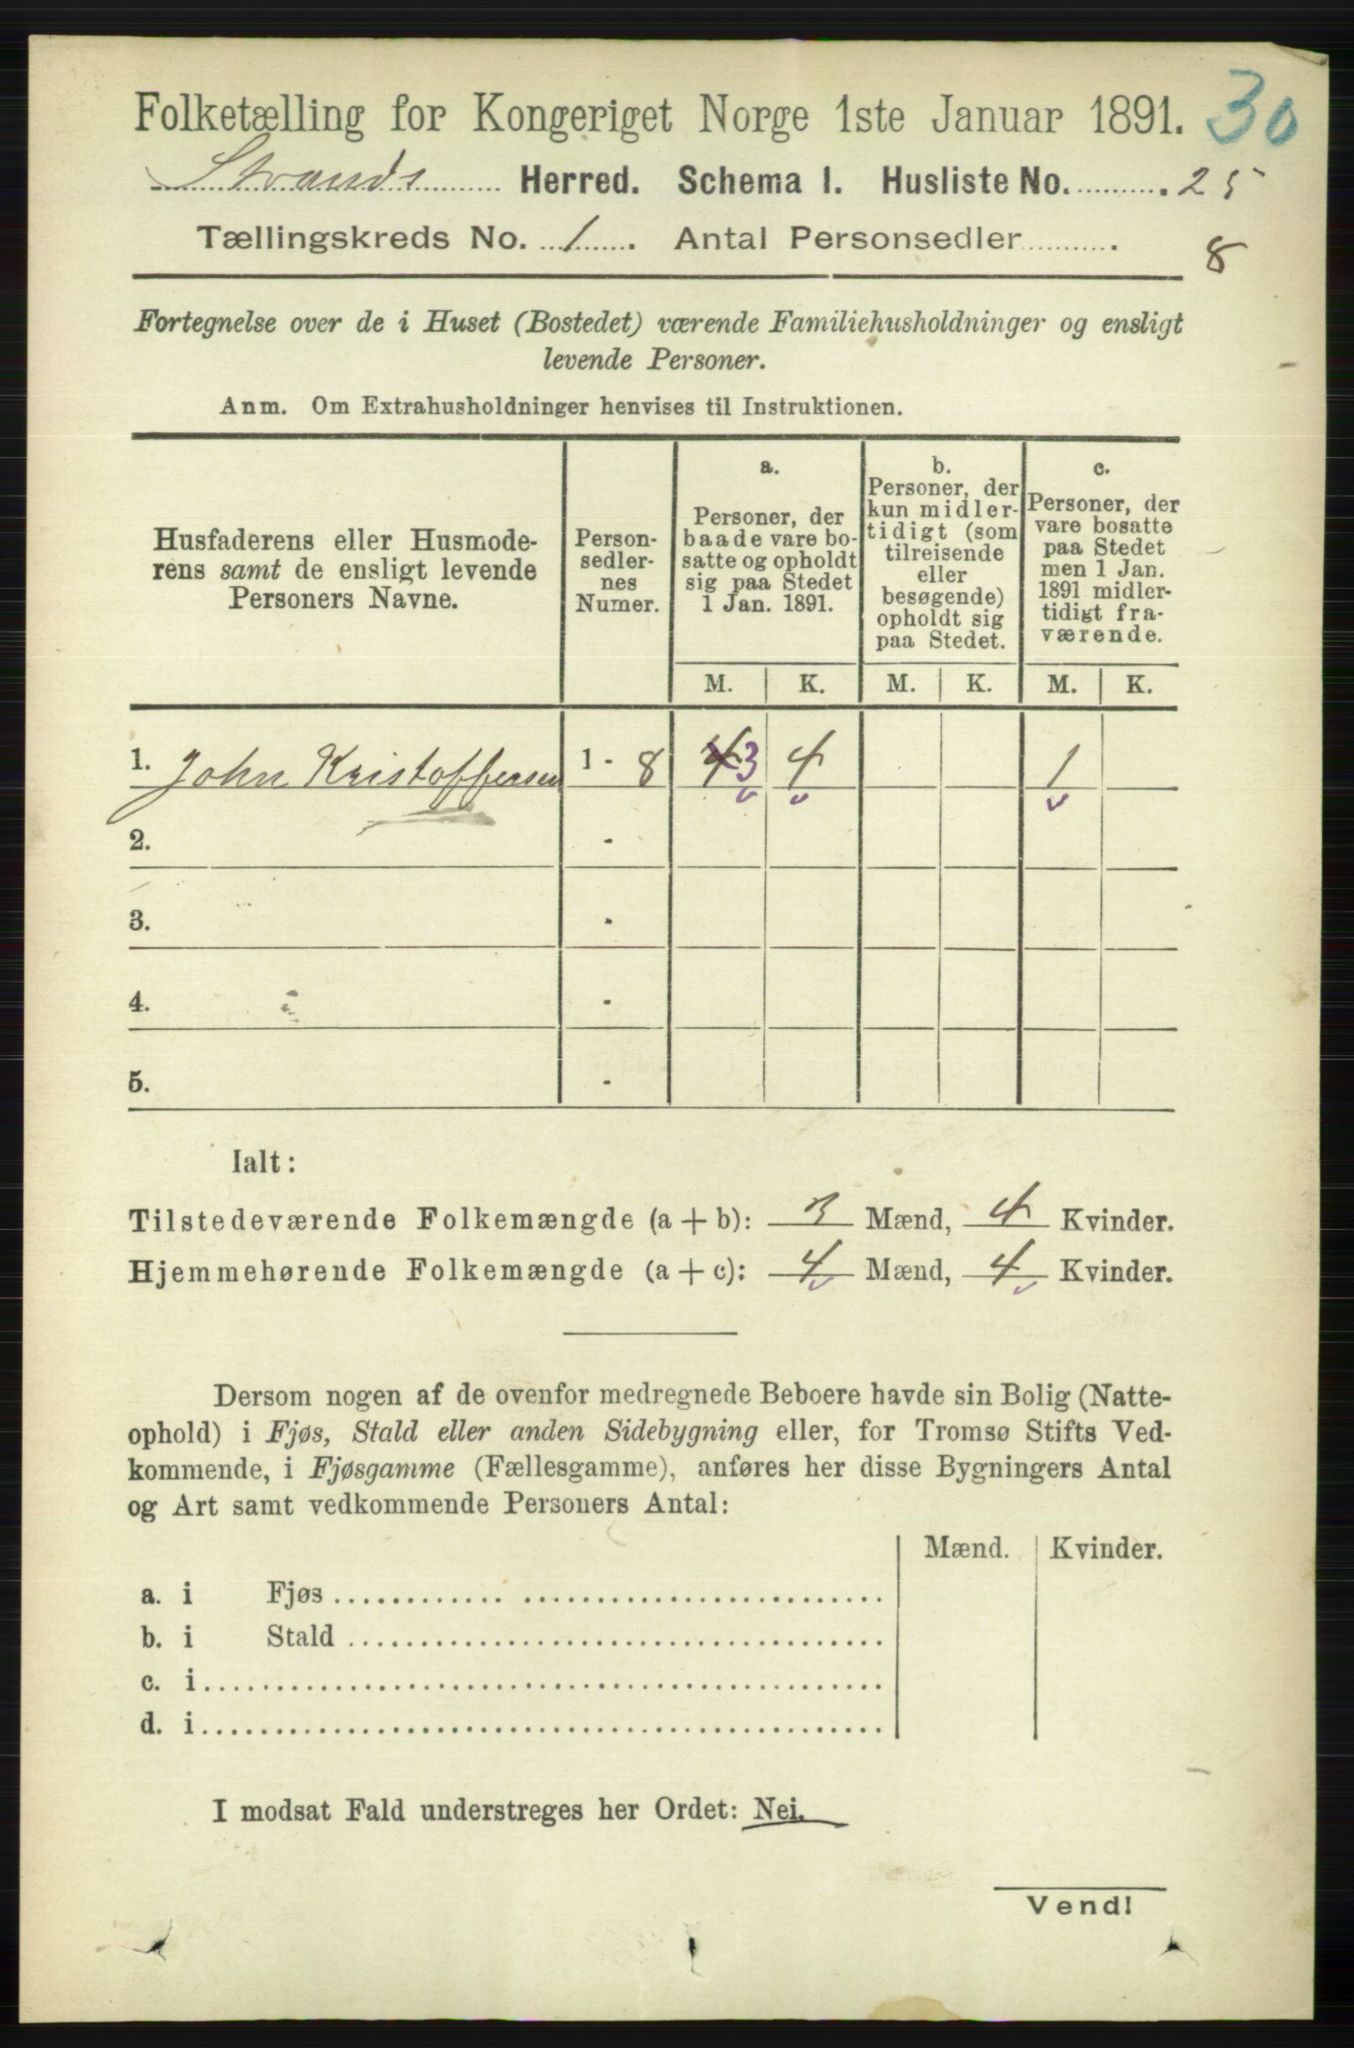 30
Folketælling for Kongeriget Norge 1ste Januar 1891.
Strands Herred. Schema I. Husliste No. 25
Tællingskreds No. 1. Antal Personsedler 8
Fortegnelse over de i Huset (Bostedet) værende Familiehusholdninger og ensligt
levende Personer.
Anm. Om Extrahusholdninger henvises til Instruktionen.
Husfaderens eller Husmode-
rens samt de ensligt levende
Personers Navne.
Person-
sedler-
nes
Numer.
a.
Personer, der
baade vare bo-
satte og opholdt
sig paa Stedet
1 Jan. 1891.
b.
Personer, der
kun midler-
tidigt (som
tilreisende
eller
besøgende)
opholdt sig
paa Stedet.
c.
Personer, der
vare bosatte
paa Stedet
men 1 Jan.
1891 midler-
tidigt fra-
værende.
M. K. M. K. M. K.
1. John Kristoffersen 1 - 8 4 3 4 1
2. -
3. -
4. -
5. -
Ialt:
Tilstedeværende Folkemængde (a + b): 3 Mænd, 4 Kvinder.
Hjemmehørende Folkemængde (a + c): 4 Mænd, 4 Kvinder.
Dersom nogen af de ovenfor medregnede Beboere havde sin Bolig (Natte-
ophold) i Fjøs, Stald eller anden Sidebygning eller, for Tromsø Stifts Ved-
kommende, i Fjøsgamme (Fællesgamme), anføres her disse Bygningers Antal
og Art samt vedkommende Personers Antal:
Mænd. Kvinder.
a. i Fjøs
b. i Stald
c. i
d. i
I modsat Fald understreges her Ordet: Nei.
Vend!